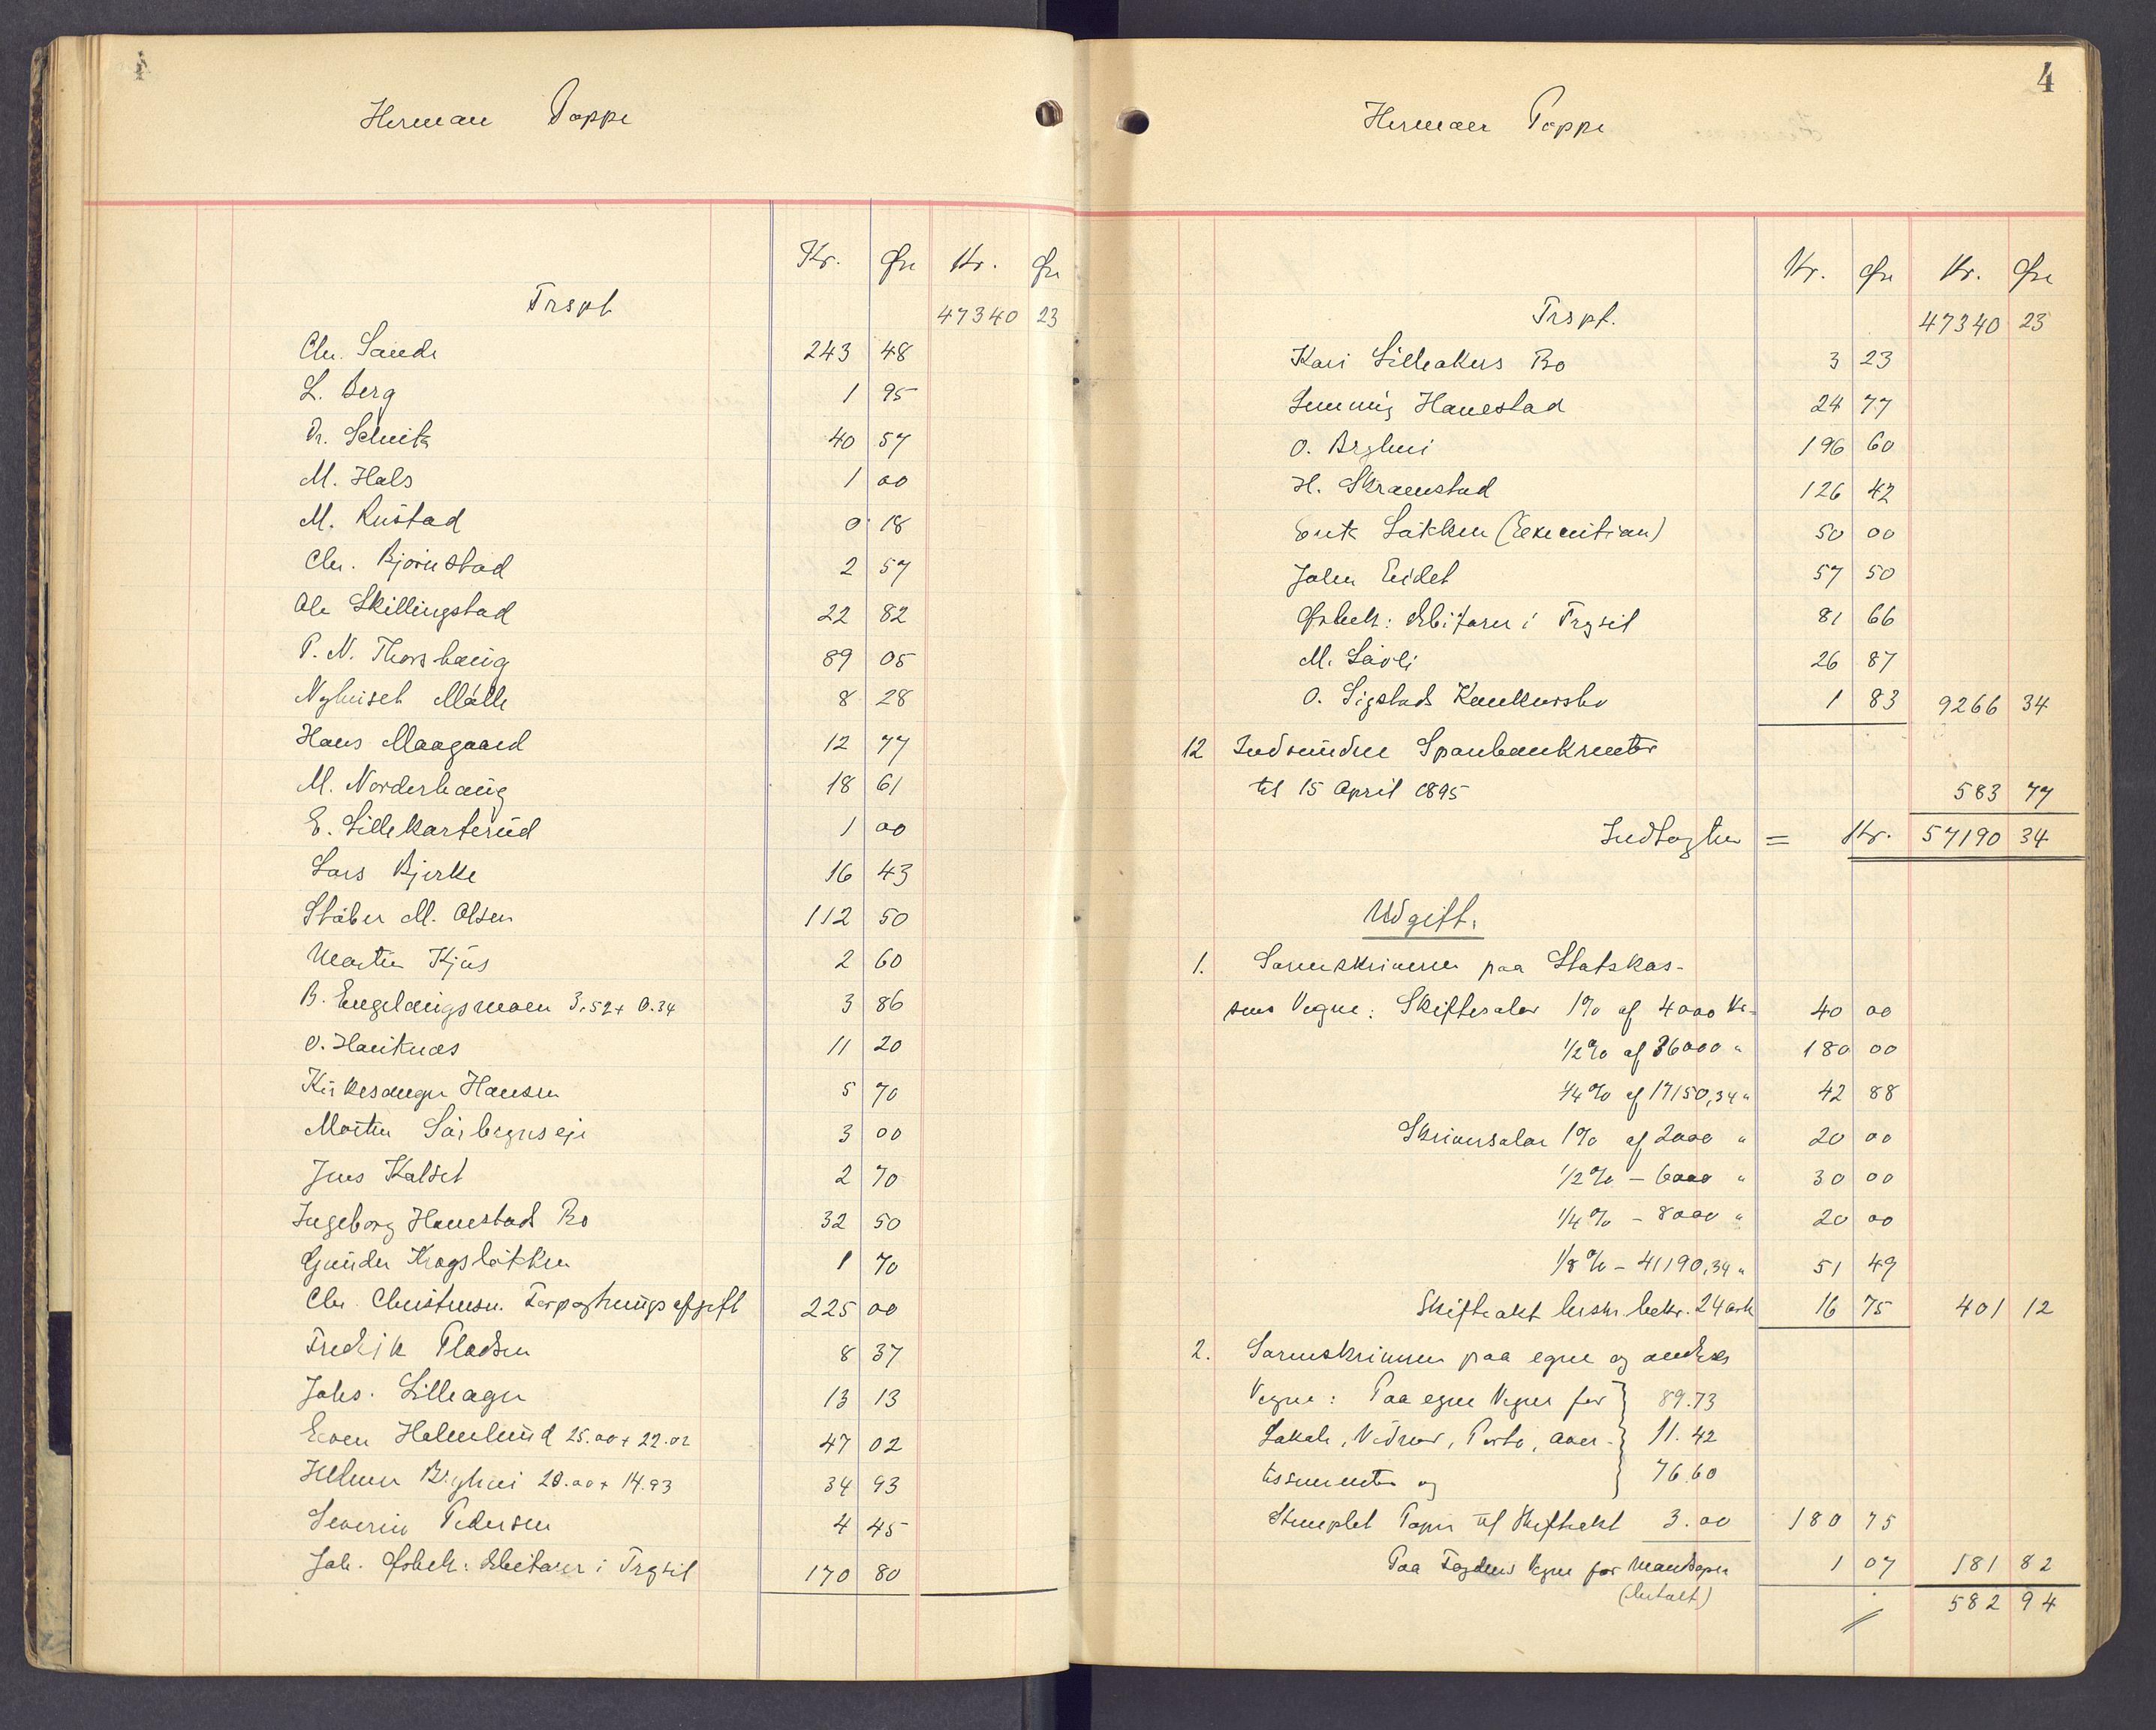 Herman Poppe
Kr. Øre Kr. Øre
Trspt 47340 23
Chr. Sande 243 48
L. Berg 1 95
Dr. Schütz 40 57
M. Hals 1 00
M. Rustad 0 18
Chr. Bjørnstad 2 57
Ole Skillingstad 22 82
P. N. Thorshaug 89 05
Nyhuset Mølle 8 28
Hans Maagaard 12 77
M. Norderhaug 18 61
E. Lillekarterud 1 00
Lars Bjerke 16 43
Støber M. Olsen 112 50
Martin Kjøs 2 60
B. Engelaugsmoen 3.52 + 0.34 3 86
O. Hauknæs 11 20
Kirkesanger Hansen 5 70
Morten Sørbergseje 3 00
Jens Kalset 2 70
Ingeborg Hanestads Bo 32 50
Gunder Krogsløkken 1 70
Chr. Christensen. Forpagtningsafgift 225 00
Fredrik Pladsen 8 37
Johs. Lilleager 13 13
Even Holmlund 25.00 + 22.02 47 02
Helmer Bryhni 20.00 + 14.93 34 93
Severin Pedersen 4 45
Joh. Øsbek: debitorer i Trysil 170 80
4
Herman Poppe
Kr. Øre Kr. Øre
Trspt. 47340 23
Kari Lilleakers Bo 3 23
Hanestad 24 77
O. Bryhni 196 60
H. Skramstad 126 42
Erik Løkken (Execution) 50 00
John Eidet 57 50
Øsbek: debitorer i Trysil 81 66
M. Løvli 26 87
O. Sigstads Konkursbo 1 83 9266 34
12 Indvundne Sparebankrenter
til 15 April 1895 583 77
Indtægter = Kr. 57190 34
Udgift.
1. Sorenskriveren paa Statskas-
sens Vegne: Skiftesalær 1% af 4000 Kr. 40 00
1/2% af 36000 " 180 00
1/4% af 17150,34 " 42 88
Skriversalær 1% af 2000 " 20 00
1/2% - 6000 " 30 00
1/4% - 8000 " 20 00
1/8% - 41190,34 " 51 49
Skifteakt beskr. bekr. 24 ark 16 75 401 12
2. Sorenskriveren paa egne og andres
Vegne: Paa egne Vegne for } 89.73
Lokale, Vidner, Porto, Aver- } 11.42
tissementer og } 76.60
Stemplet Papir til Skifteakt 3.00 180 75
Paa Fogdens Vegne for Mandtaper 1 07 181 82
(betalt) 582 94